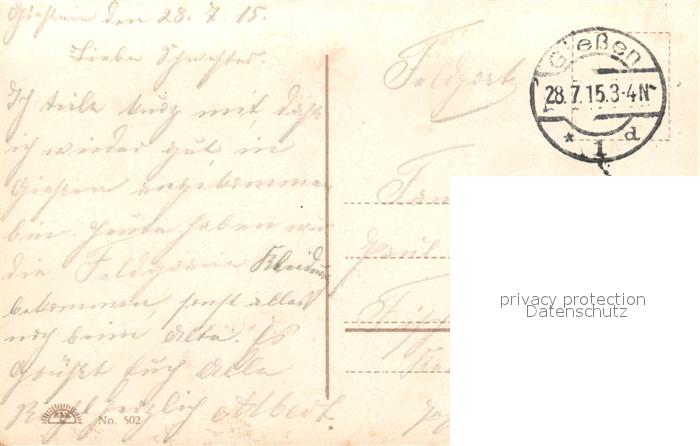 Gießen den 28.7.15.
Liebe Schwester.
Ich teile kurz mit, daß
ich wieder gut in
Gießen angekommen
bin. Heute haben wir
die Feldgraue Kleidung
bekommen, sonst alles
noch beim Alten. Es
Grüßt Euch Alle
Recht herzlich Albert.
No. 502
Feldpost
Gießen
28.7.15.3-4N
* 1 d
privacy protection
Datenschutz